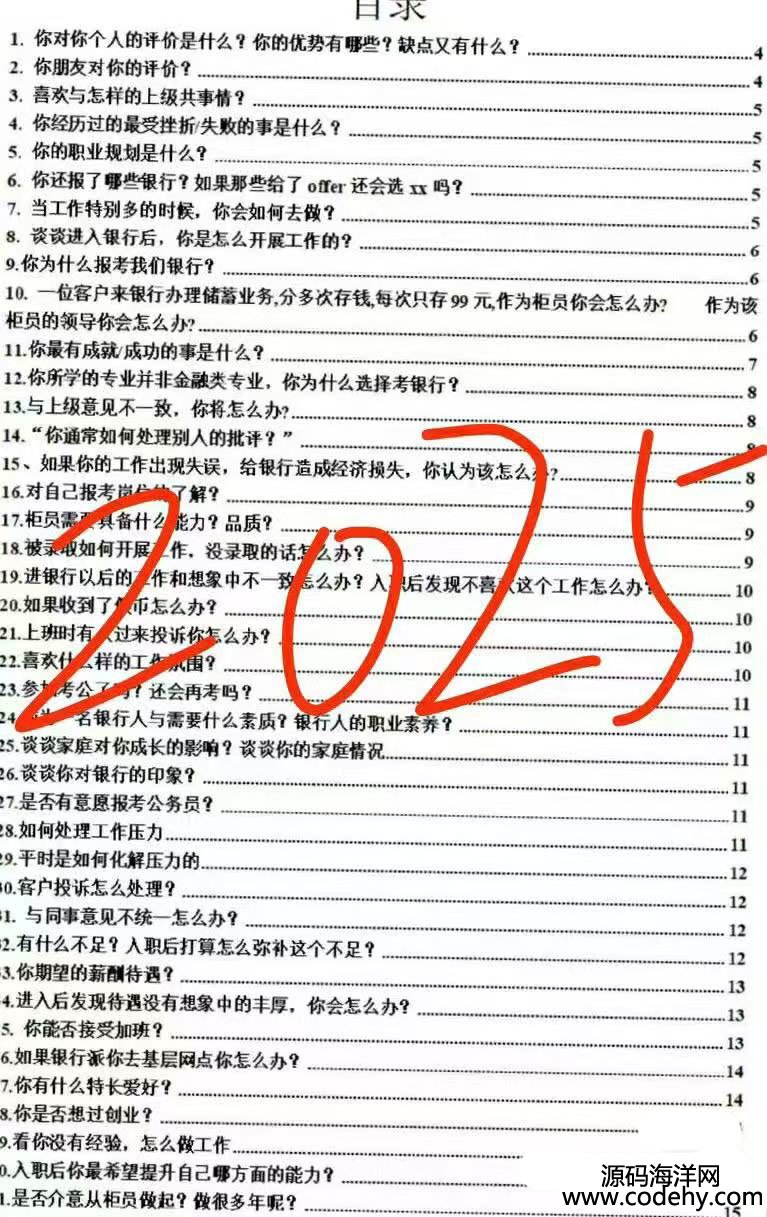 目录
1. 你对你个人的评价是什么？你的优势有哪些？缺点又有什么？ 4
2. 你朋友对你的评价？ 4
3. 喜欢与怎样的上级共事情？ 5
4. 你经历过的最受挫折/失败的事是什么？ 5
5. 你的职业规划是什么？ 5
6. 你还报了哪些银行？如果那些给了 offer 还会选 xx 吗？ 5
7. 当工作特别多的时候，你会如何去做？ 5
8. 谈谈进入银行后，你是怎么开展工作的？ 6
9.你为什么报考我们银行？ 6
10. 一位客户来银行办理储蓄业务,分多次存钱,每次只存 99 元,作为柜员你会怎么办? 作为该
柜员的领导你会怎么办? 6
11.你最有成就/成功的事是什么？ 7
12.你所学的专业并非金融类专业，你为什么选择考银行？ 8
13.与上级意见不一致，你将怎么办? 8
14.“你通常如何处理别人的批评？” 8
15、如果你的工作出现失误，给银行造成经济损失，你认为该怎么办? 8
16.对自己报考岗位的了解？ 9
17.柜员需要具备什么能力？品质？ 9
18.被录取如何开展工作，没录取的话怎么办？ 9
19.进银行以后的工作和想象中不一致怎么办？入职后发现不喜欢这个工作怎么办？ 10
20.如果收到了假币怎么办？ 10
21.上班时有人过来投诉你怎么办？ 10
22.喜欢什么样的工作氛围？ 10
23.参加考公了吗？还会再考吗？ 11
24.作为一名银行人与需要什么素质？银行人的职业素养？ 11
25.谈谈家庭对你成长的影响？谈谈你的家庭情况 11
26.谈谈你对银行的印象？ 11
27.是否有意愿报考公务员？ 11
28.如何处理工作压力 11
29.平时是如何化解压力的 12
30.客户投诉怎么处理？ 12
31. 与同事意见不统一怎么办？ 12
32.有什么不足？入职后打算怎么弥补这个不足？ 12
33.你期望的薪酬待遇？ 13
4.进入后发现待遇没有想象中的丰厚，你会怎么办？ 13
5. 你能否接受加班？ 13
6.如果银行派你去基层网点你怎么办？ 14
7.你有什么特长爱好？ 14
8.你是否想过创业？
9.看你没有经验，怎么做工作
0.入职后你最希望提升自己哪方面的能力？
1.是否介意从柜员做起？做很多年呢？ 15
2025
源码海洋网
www.codehy.com